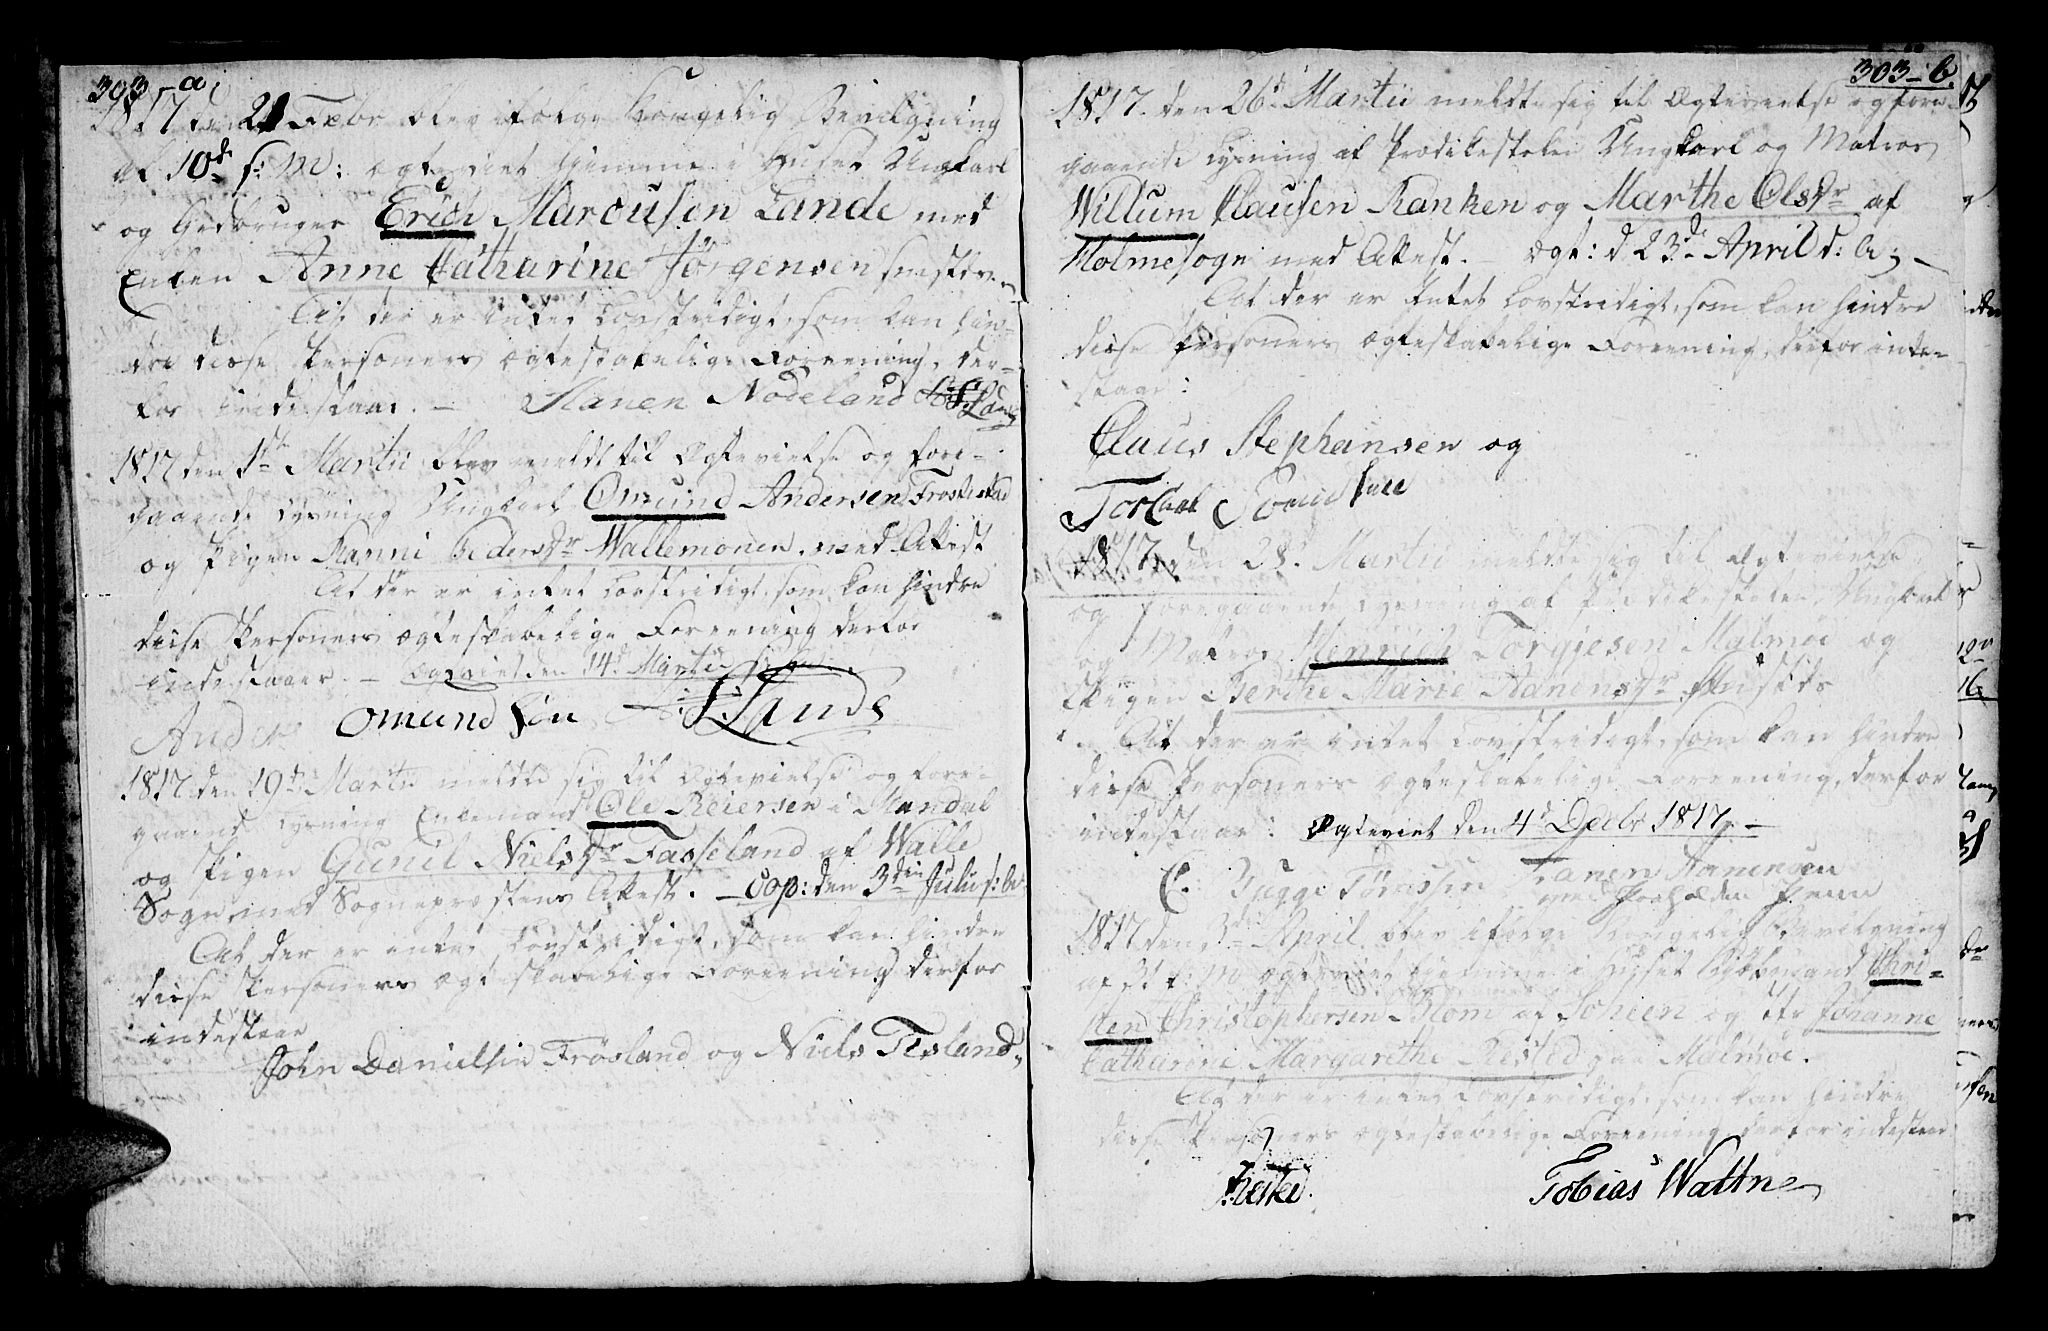 303-a.
1817 den 21 Febr blev ifølge Kongelig Bevilgning
af 10de f: M: ægteviet hjemme i Huset Ungkarl
og Gidbruger Erich Marcusen Lande med
Enken Anne Catharine Jørgensen
At der er intet Lovstridigt, som kan hin-
dre disse Personers ægteskabelige Foreening, der-
for indestaar. — Hanen Nodeland
1817 den 1ste Martii blev meldt til Ægtevielse og fore-
gaaende Lysning Ungkarl Omund Andersen Frostestad
og Pigen Ranni Pedersdr Wallemonen. med Attest
At der er intet Lovstridigt, som kan hindre
disse Personers ægteskabelige Foreening derfor
indestaaer. — Ægteviet den 14d Martii
Anders Omund Søn
1817 den 19de Martii meldte sig til Ægtevielse og fore-
gaaende Lysning Enkemand Ole Reiersen i Mandal
og Pigen Gunil Nielsdr Fasseland af Walle
Sogn med Sognepræstens Attest. — Cop: den 3die Julii s: A:
At der er intet Lovstridigt, som kan hindre
disse Personers ægteskabelige Foreening derfor
indestaae
John Danielsen Frøsland og Niels Fesland
303-b.
1817. den 26d Martii meldte sig til Ægtevielse og fore-
gaaende Lysning af Prædikestolen Ungkarl og Matros
Willum Clausen Ranken og Marthe Olsdr af
Holme sogn med Attest. — Ægt: d 23de April d: A: —
At der er Intet Lovstridigt, som kan hindre
disse Personers Ægteskabelige Foreening, derfor inde-
staae:
Claus Stephansen og
1817. den 28d Martii meldte sig til Ægtevielse
og foregaaende Lysning af Prædikestolen, Ungkarl
og Matros Henrich Torgjesen Malmøe og
Pigen Berthe Marie Aanensdr
At der er intet Lovstridigt, som kan hindre
disse Personers Ægteskabelige Foreening, derfor
indestaae: Ægteviet den 4d Decbr 1817. —
Tanen Aanensøn
med paaholden Penn
1817 den 3d April blev ifølge Kongelig Bevilgning
af ægteviet hjemme i Huset Chri-
sten Christophersen Blom af Scheen og Jfr Johanne
Catharine Margarethe Rested paa Malmøe.
At der er intet Lovstridigt, som kan hindre
disse Personers Ægteskabelige Foreening derfor indestaae
Rested. Tobias Wattne